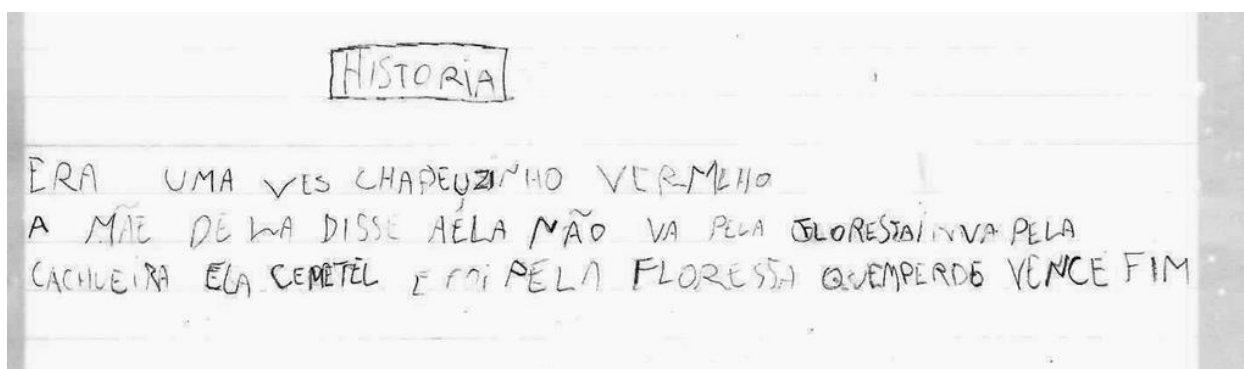 HISTORIA
ERA UMA VES CHAPEUZINHO VERMLHO
A MÃE DE LA DISSE AÉLA NÃO VA PELA FLORESTA VA PELA
CACHUEIRA ELA CEMETEL E FOI PELA FLORESSA QUEMPERDE VENCE FIM